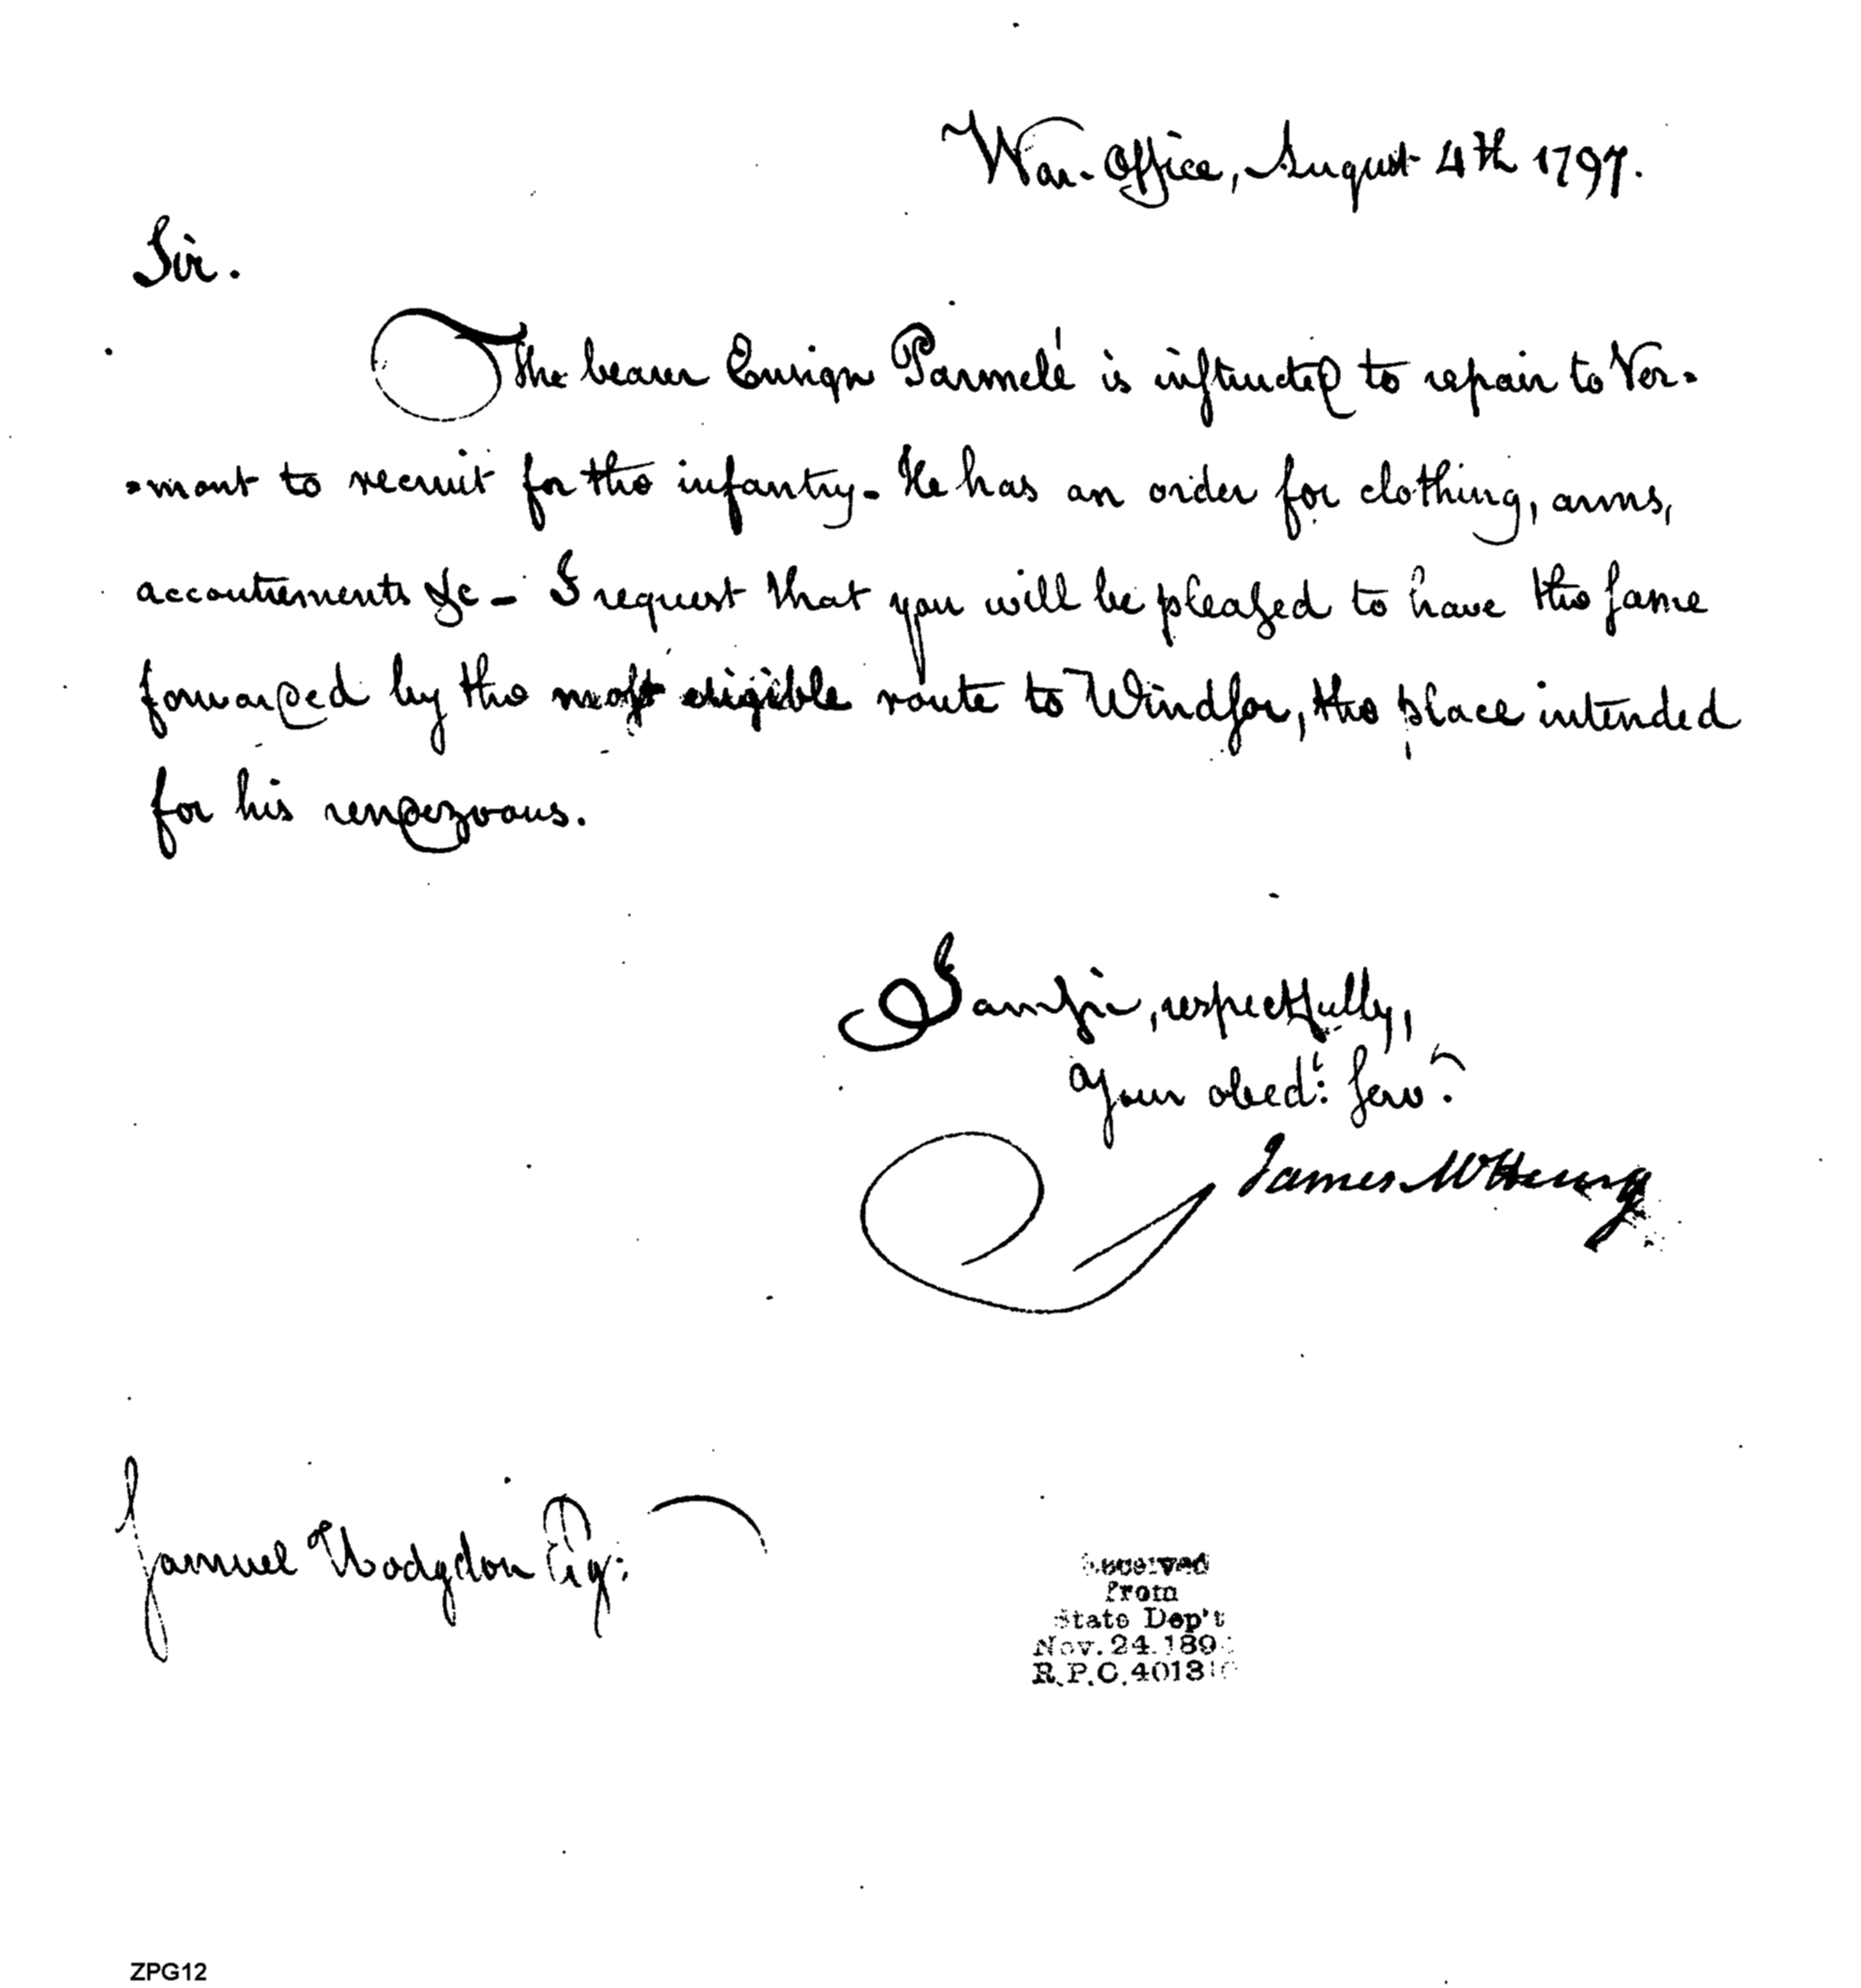 War-Office, August 4th 1797.
Sir.
The bearer Ensign Parmelé is instructed to repair to Ver=
=mont to recruit for the infantry- He has an order for clothing, arms,
accoutrements &c - I request that you will be pleased to have the same
forwarded by the most eligible route to Windsor, the place intended
for his rendezvous.
I am Sir, respectfully,
Your obedt: servt.
James McHenry
Samuel Hodgdon Esq:
Received
from
State Dep't
Nov. 24. 189
R.P.C. 4013
ZPG12